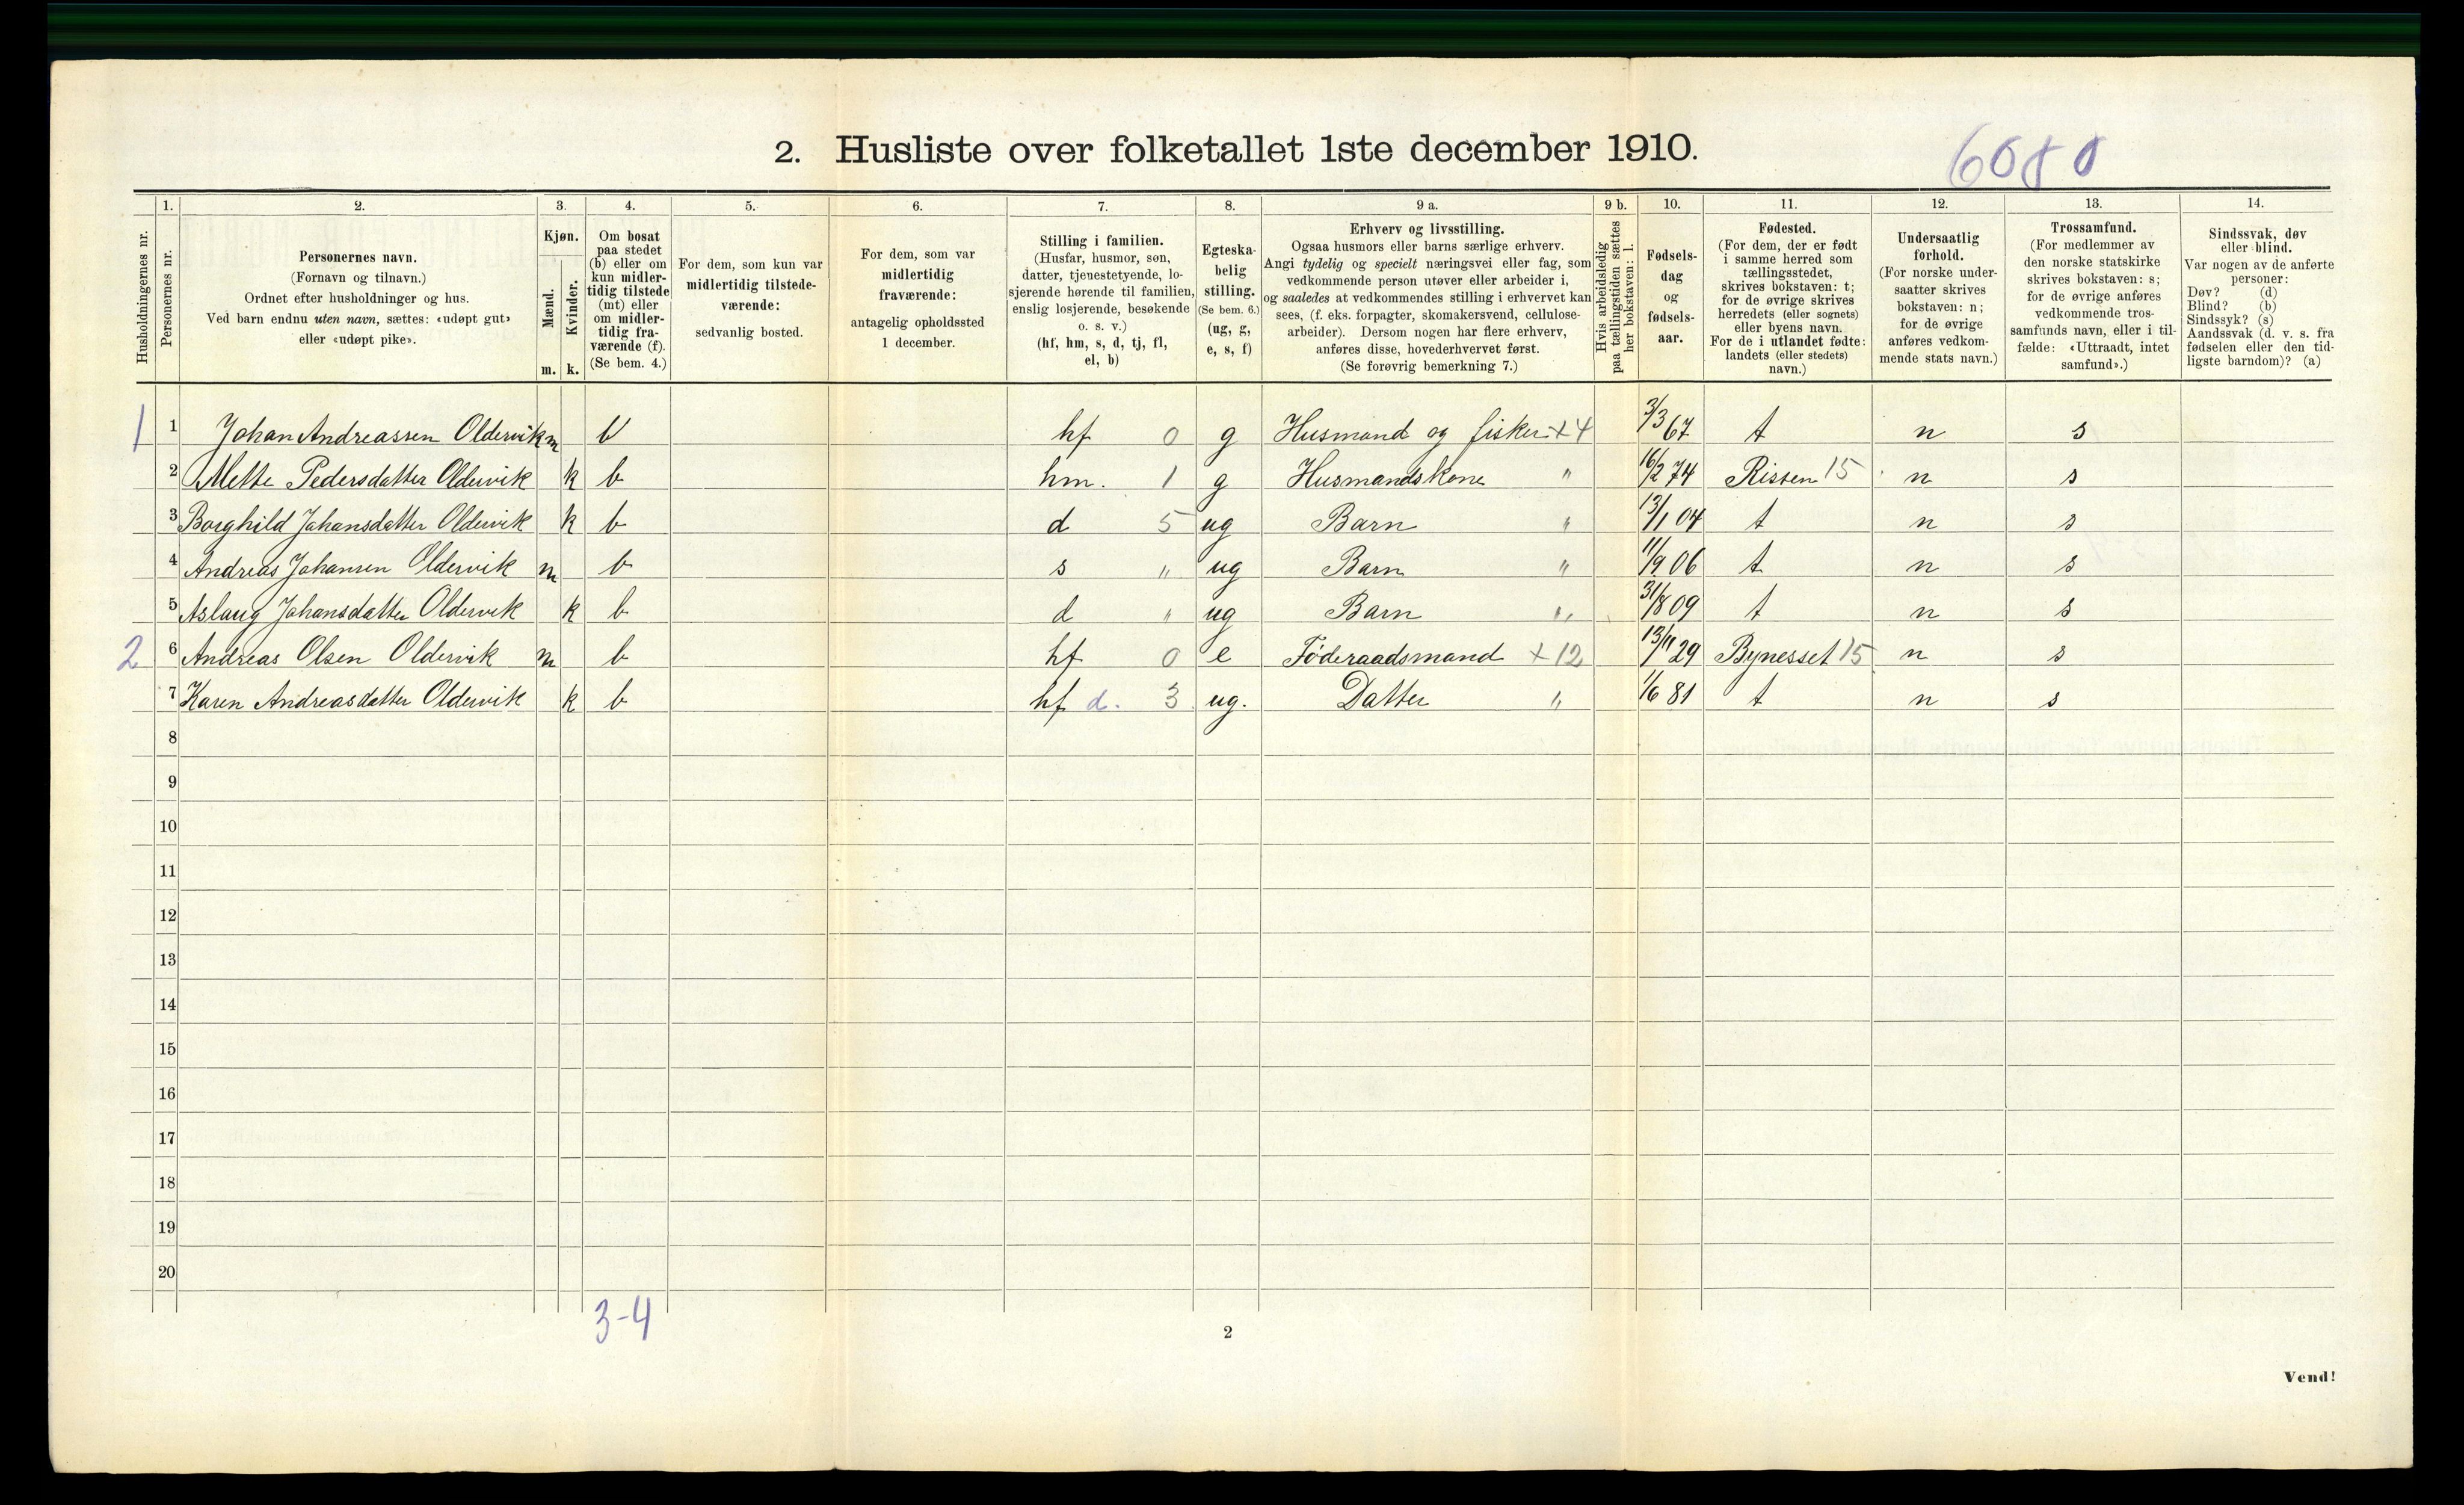 2. Husliste over folketallet 1ste december 1910.
1. 2. 3. 4. 5. 6. 7. 8. 9 a. 9 b. 10. 11. 12. 13. 14.
Husholdningernes nr.
Personernes nr.
Personernes navn.
(Fornavn og tilnavn.)
Ordnet efter husholdninger og hus.
Ved barn endnu uten navn, sættes: «udøpt gut»
eller «udøpt pike».
Kjøn.
Mænd.
Kvinder.
m. k.
Om bosat
paa stedet
(b) eller om
kun midler-
tidig tilstede
(mt) eller
om midler-
tidig fra-
værende (f).
(Se bem. 4.)
For dem, som kun var
midlertidig tilstede-
værende:
sedvanlig bosted.
For dem, som var
midlertidig
fraværende:
antagelig opholdssted
1 december.
Stilling i familien.
(Husfar, husmor, søn,
datter, tjenestetyende, lo-
sjerende hørende til familien,
enslig losjerende, besøkende
o. s. v.)
(hf, hm, s, d, tj, fl,
el, b)
Egteska-
belig
stilling.
(Se bem. 6.)
(ug, g,
e, s, f)
Erhverv og livsstilling.
Ogsaa husmors eller barns særlige erhverv.
Angi tydelig og specielt næringsvei eller fag, som
vedkommende person utøver eller arbeider i,
og saaledes at vedkommendes stilling i erhvervet kan
sees, (f. eks. forpagter, skomakersvend, cellulose-
arbeider). Dersom nogen har flere erhverv,
anføres disse, hovederhvervet først.
(Se forøvrig bemerkning 7.)
Hvis arbeidsledig
paa tællingstiden sættes
her bokstaven: l.
Fødsels-
dag
og
fødsels-
aar.
Fødested.
(For dem, der er født
i samme herred som
tællingsstedet,
skrives bokstaven: t;
for de øvrige skrives
herredets (eller sognets)
eller byens navn.
For de i utlandet fødte:
landets (eller stedets)
navn.)
Undersaatlig
forhold.
(For norske under-
saatter skrives
bokstaven: n;
for de øvrige
anføres vedkom-
mende stats navn.)
Trossamfund.
(For medlemmer av
den norske statskirke
skrives bokstaven: s;
for de øvrige anføres
vedkommende tros-
samfunds navn, eller i til-
fælde: «Uttraadt, intet
samfund».)
Sindssvak, døv
eller blind.
Var nogen av de anførte
personer:
Døv? (d)
Blind? (b)
Sindssyk? (s)
Aandssvak (d. v. s. fra
fødselen eller den tid-
ligste barndom)? (a)
1 1 Johan Andreassen Oldervik m b hf 0 g Husmand og fisker x 4 3/3 67 t n s
2 Mette Pedersdatter Oldervik k b hm. 1 g Husmandskone " 16/2 74 Rissen 15 n s
3 Borghild Johansdatter Oldervik k b d 5 ug Barn " 13/1 04 t n s
4 Andreas Johansen Oldervik m b s " ug Barn " 11/9 06 t n s
5 Aslaug Johansdatter Oldervik k b d " ug Barn " 31/8 09 t n s
2 6 Andreas Olsen Oldervik m b hf 0 e Föderaadsmand x 12 13/11 29 Bynesset 15 n s
7 Karen Andreasdatter Oldervik k b hf d. 3 ug. Datter " 1/6 81 t n s
8
9
10
11
12
13
14
15
16
17
18
19
20
3-4
2
Vend!